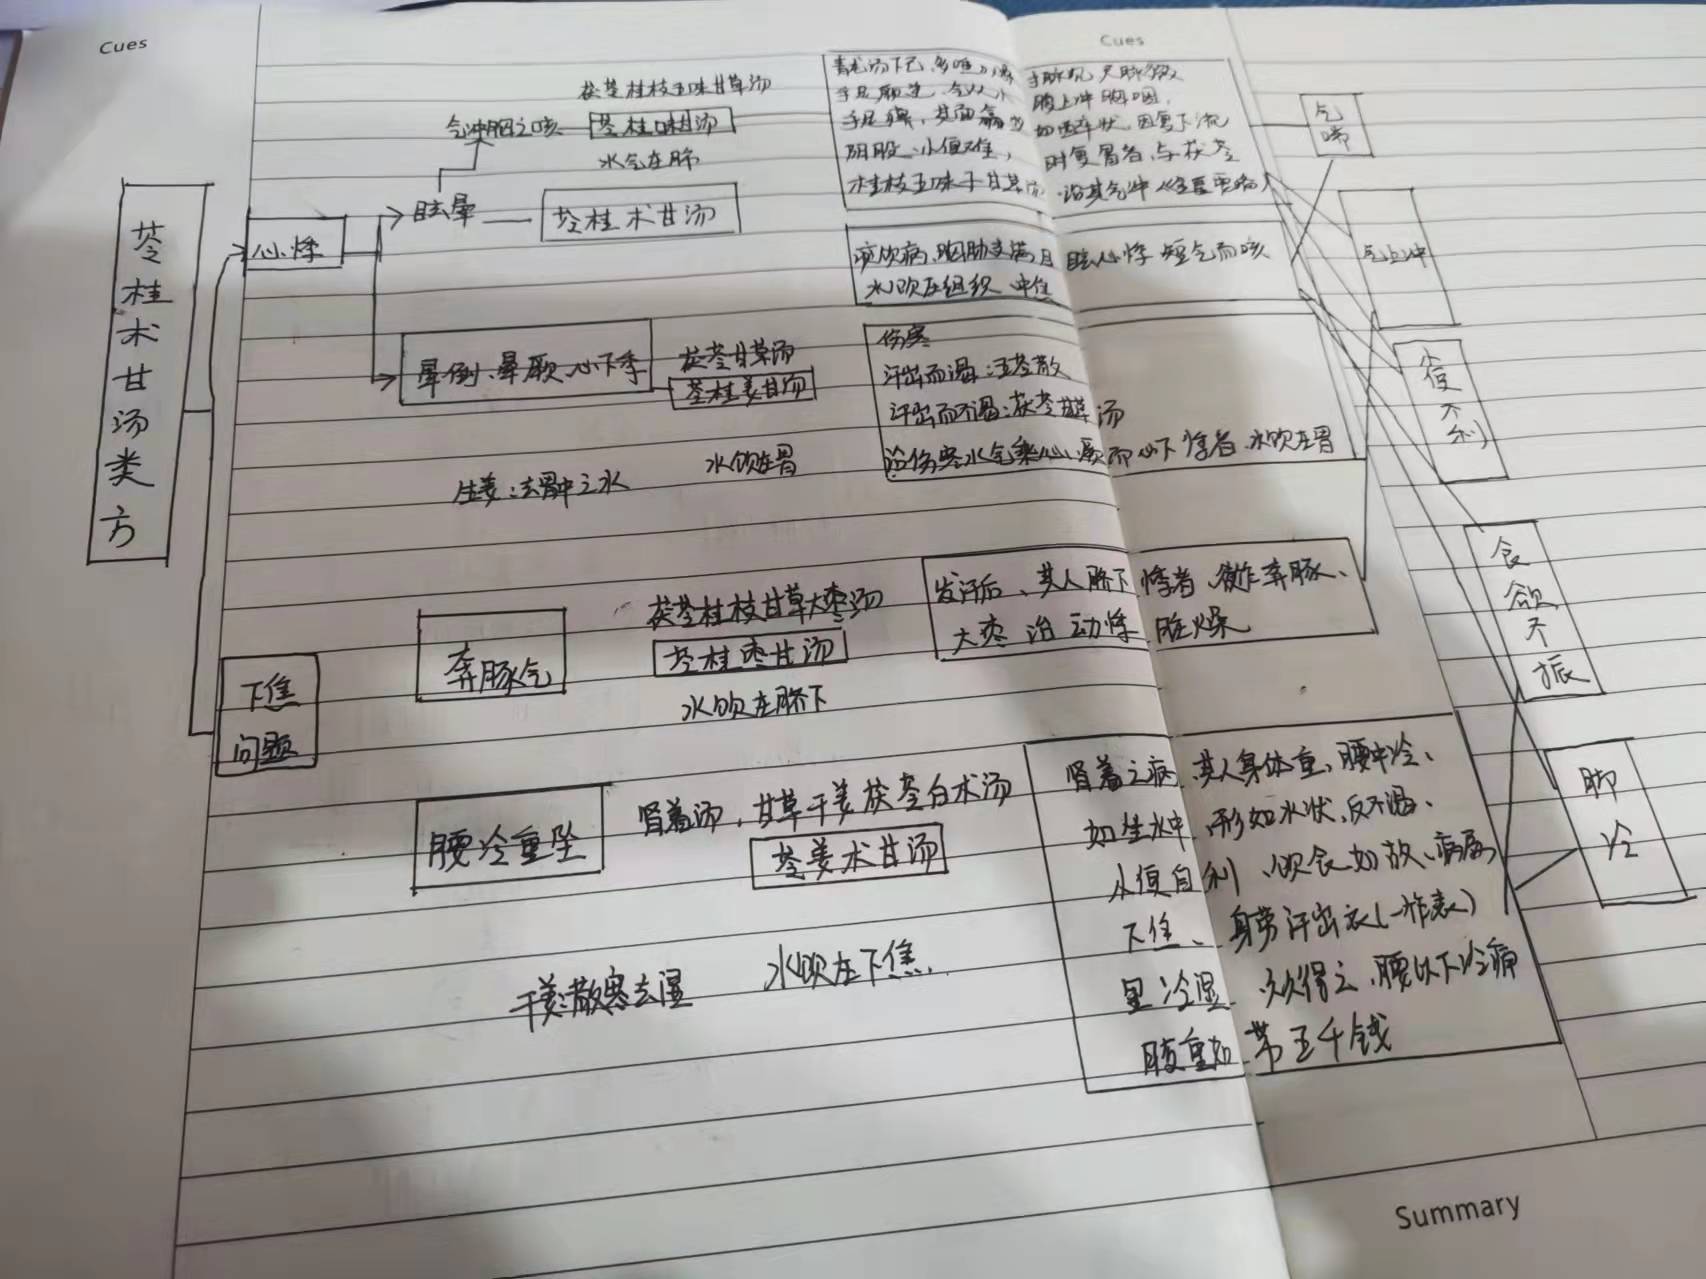 Cues
Cues
苓桂术甘汤类方
心悸
眩晕
气冲胸之咳
茯苓桂枝五味甘草汤
苓桂味甘汤
水气在肺
苓桂术甘汤
青龙汤下已,多唾口燥
手足厥逆,气从小
手足痹,其面翕
阴股,小便难,
桂枝五味子甘草汤
寸脉沉,尺脉微
腹上冲胸咽,
如醉状,因复下流
时复冒者,与茯苓
治其气冲
痰饮病、胸胁支满目眩心悸 短气而咳
水饮在组织 中焦
晕倒、晕厥、心下季
茯苓甘草汤
苓桂姜甘汤
水饮在胃
生姜:去胃中之水
伤寒
汗出而渴:五苓散
汗出而不渴:茯苓甘草汤
治伤寒水气乘心、厥而心下悸者、水饮在胃
下焦
问题
奔豚气
茯苓桂枝甘草大枣汤
苓桂枣甘汤
水饮在脐下
发汗后、其人脐下悸者、欲作奔豚、
大枣治动悸 脏燥
腰冷重坠
肾着汤,甘草干姜茯苓白术汤
苓姜术甘汤
干姜:散寒去湿
水饮在下焦
肾着之病 其人身体重,腰中冷、
如坐水中,形如水状,反不渴、
小便自利、饮食如故、病属
下焦、身劳汗出,衣(一作表)
里冷湿 久久得之,腰以下冷痛
腹重如带五千钱
气喘
气上冲
小便不利
食欲不振
脚冷
Summary